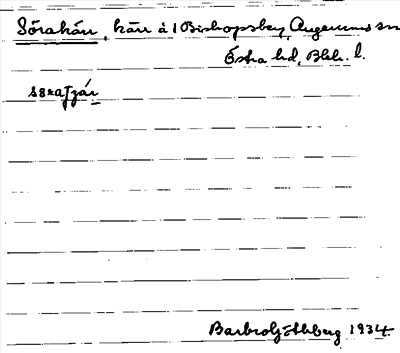 Sörakärr, kärr å 1 Bishopsberg, Augerums sn
Östra hd, Blek. l.
Barbro Göthberg 1934.